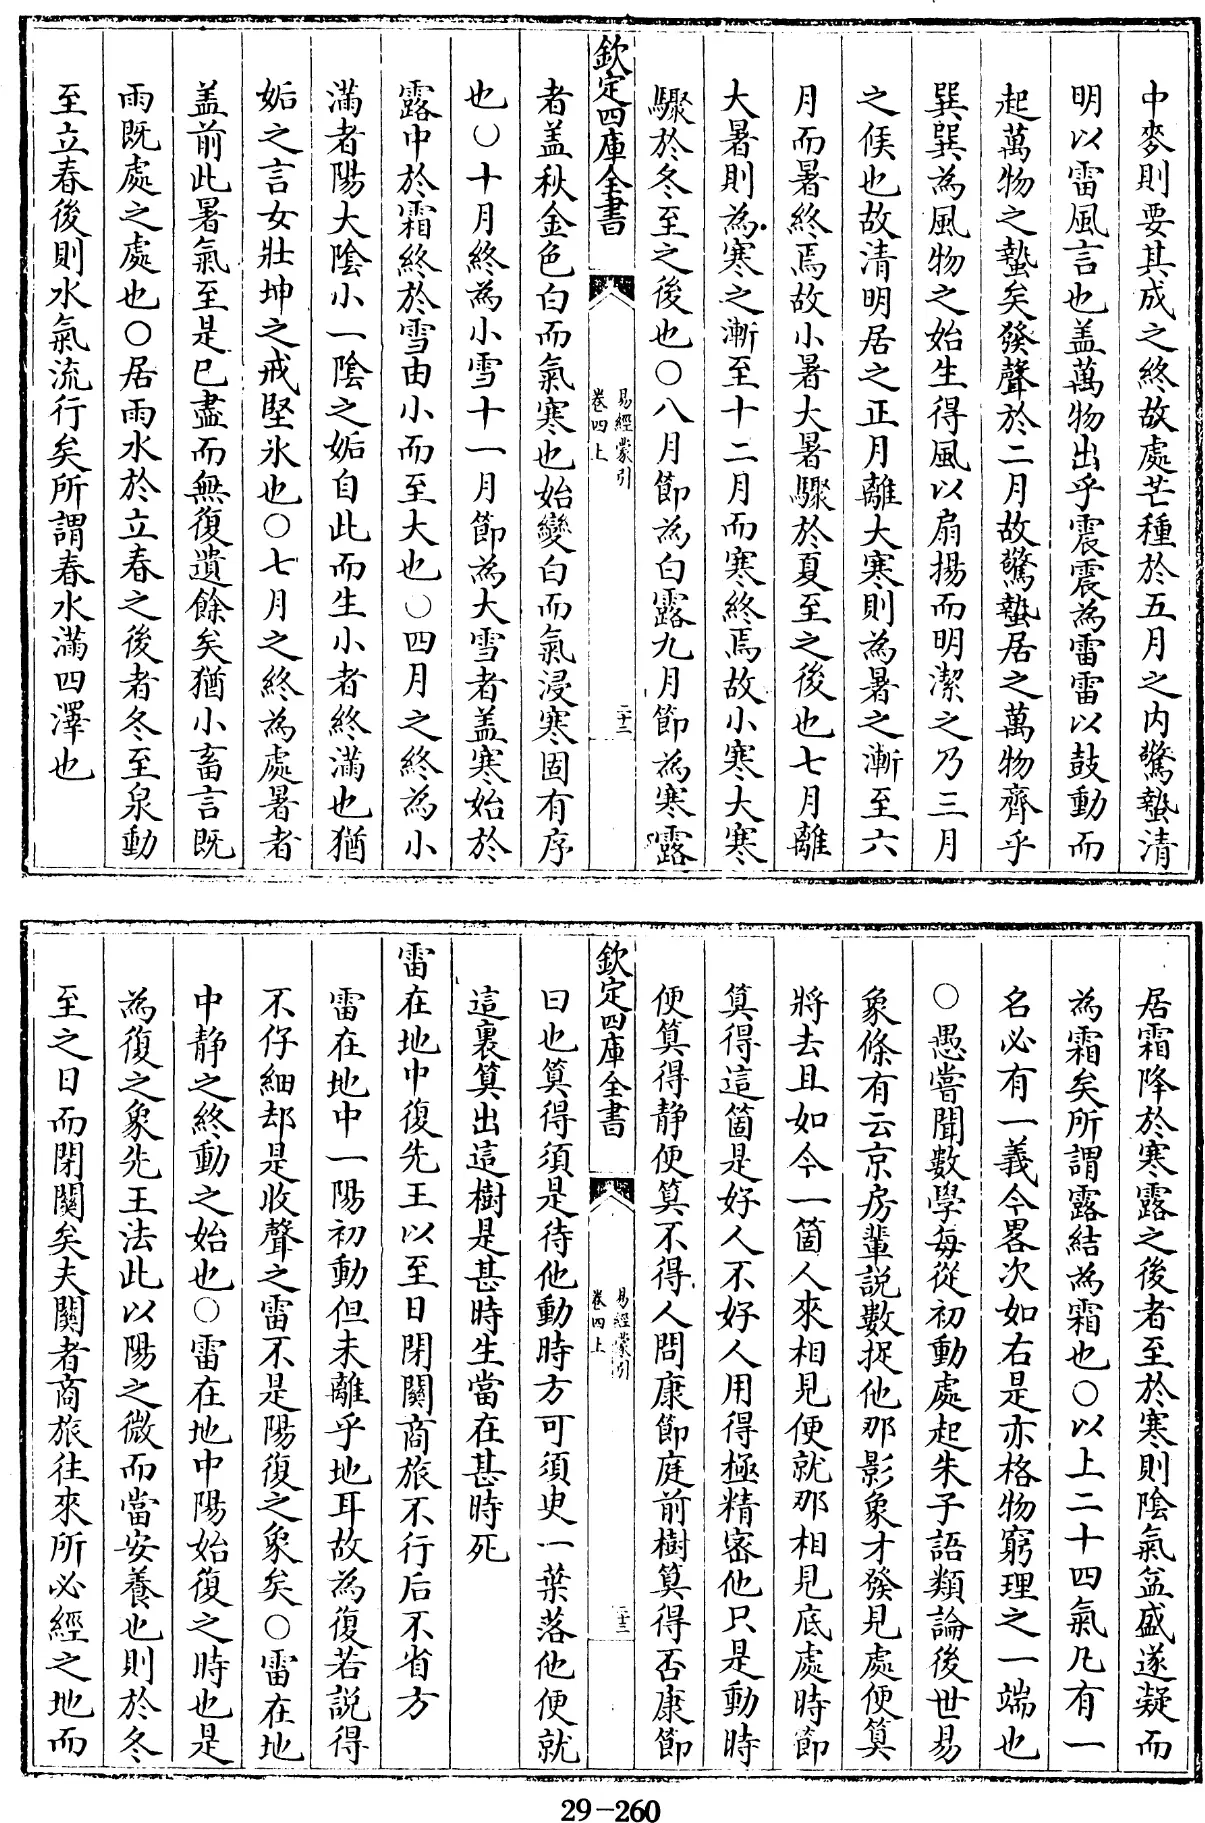 中麥則要其成之終故處芒種於五月之内驚蟄清
明以雷風言也盖萬物出乎震震為雷雷以鼓動而
起萬物之蟄矣發聲於二月故驚蟄居之萬物齊乎
巽巽為風物之始生得風以扇揚而明潔之乃三月
之候也故清明居之正月離大寒則為暑之漸至六
月而暑終焉故小暑大暑驟於夏至之後也七月離
大暑則為寒之漸至十二月而寒終焉故小寒大寒
驟於冬至之後也〇八月節為白露九月節為寒露
欽定四庫全書
易經蒙引
卷四上
二十三
者盖秋金色白而氣寒也始變白而氣浸寒固有序
也〇十月終為小雪十一月節為大雪者盖寒始於
露中於霜終於雪由小而至大也〇四月之終為小
滿者陽大陰小一陰之姤自此而生小者終滿也猶
姤之言女壯坤之戒堅氷也〇七月之終為處暑者
盖前此暑氣至是已盡而無復遺餘矣猶小畜言既
雨既處之處也〇居雨水於立春之後者冬至泉動
至立春後則水氣流行矣所謂春水滿四澤也
居霜降於寒露之後者至於寒則陰氣益盛遂凝而
為霜矣所謂露結為霜也〇以上二十四氣凡有一
名必有一義今畧次如右是亦格物窮理之一端也
〇愚嘗聞數學每從初動處起朱子語類論後世易
象條有云京房輩説數捉他那影象才發見處便算
將去且如今一箇人來相見便就那相見底處時節
算得這箇是好人不好人用得極精宻他只是動時
便算得静便算不得人問康節庭前樹算得否康節
欽定四庫全書
易經蒙引
卷四上
二十三
曰也算得須是待他動時方可須臾一葉落他便就
這裏算出這樹是甚時生當在甚時死
雷在地中復先王以至日閉關商旅不行后不省方
雷在地中一陽初動但未離乎地耳故為復若説得
不仔細却是收聲之雷不是陽復之象矣〇雷在地
中静之終動之始也〇雷在地中陽始復之時也是
為復之象先王法此以陽之微而當安養也則於冬
至之日而閉關矣夫關者商旅往來所必經之地而
29-260